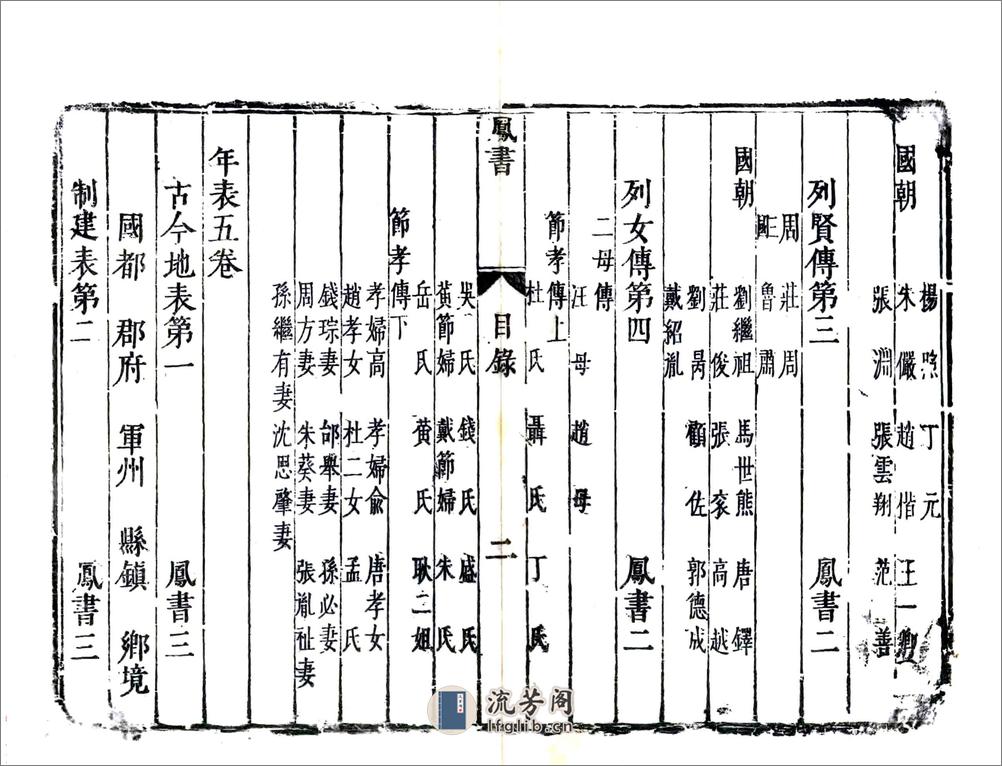 楊　丁元
國朝
朱儼　趙偕　王一
張淵　張雲翔　范善
列賢傳第三　鳳書二
周　莊周
魯肅
國朝
劉繼祖　馬世熊　唐鐸
莊俊　張　高越
劉　顧佐　郭德成
戴紹胤
列女傳第四　鳳書二
二母傳
汪母　趙母
節孝傳上
杜氏　聶氏　丁氏
鳳書　目錄　二
吳氏　錢氏　盛氏
黃節婦　戴節婦　朱氏
岳氏　黃氏　耿二姐
節孝傳下
孝婦高　孝婦俞　唐孝女
趙孝女　杜二女　孟氏
錢琮妻　邰舉妻　孫必妻
周方妻　朱葵妻　張胤祉妻
孫繼有妻　沈思肇妻
年表五卷
古今地表第一　鳳書三
國都　郡府　軍州　縣鎮　鄉境
制建表第二　鳳書三
流芳阁
lfglib.cn